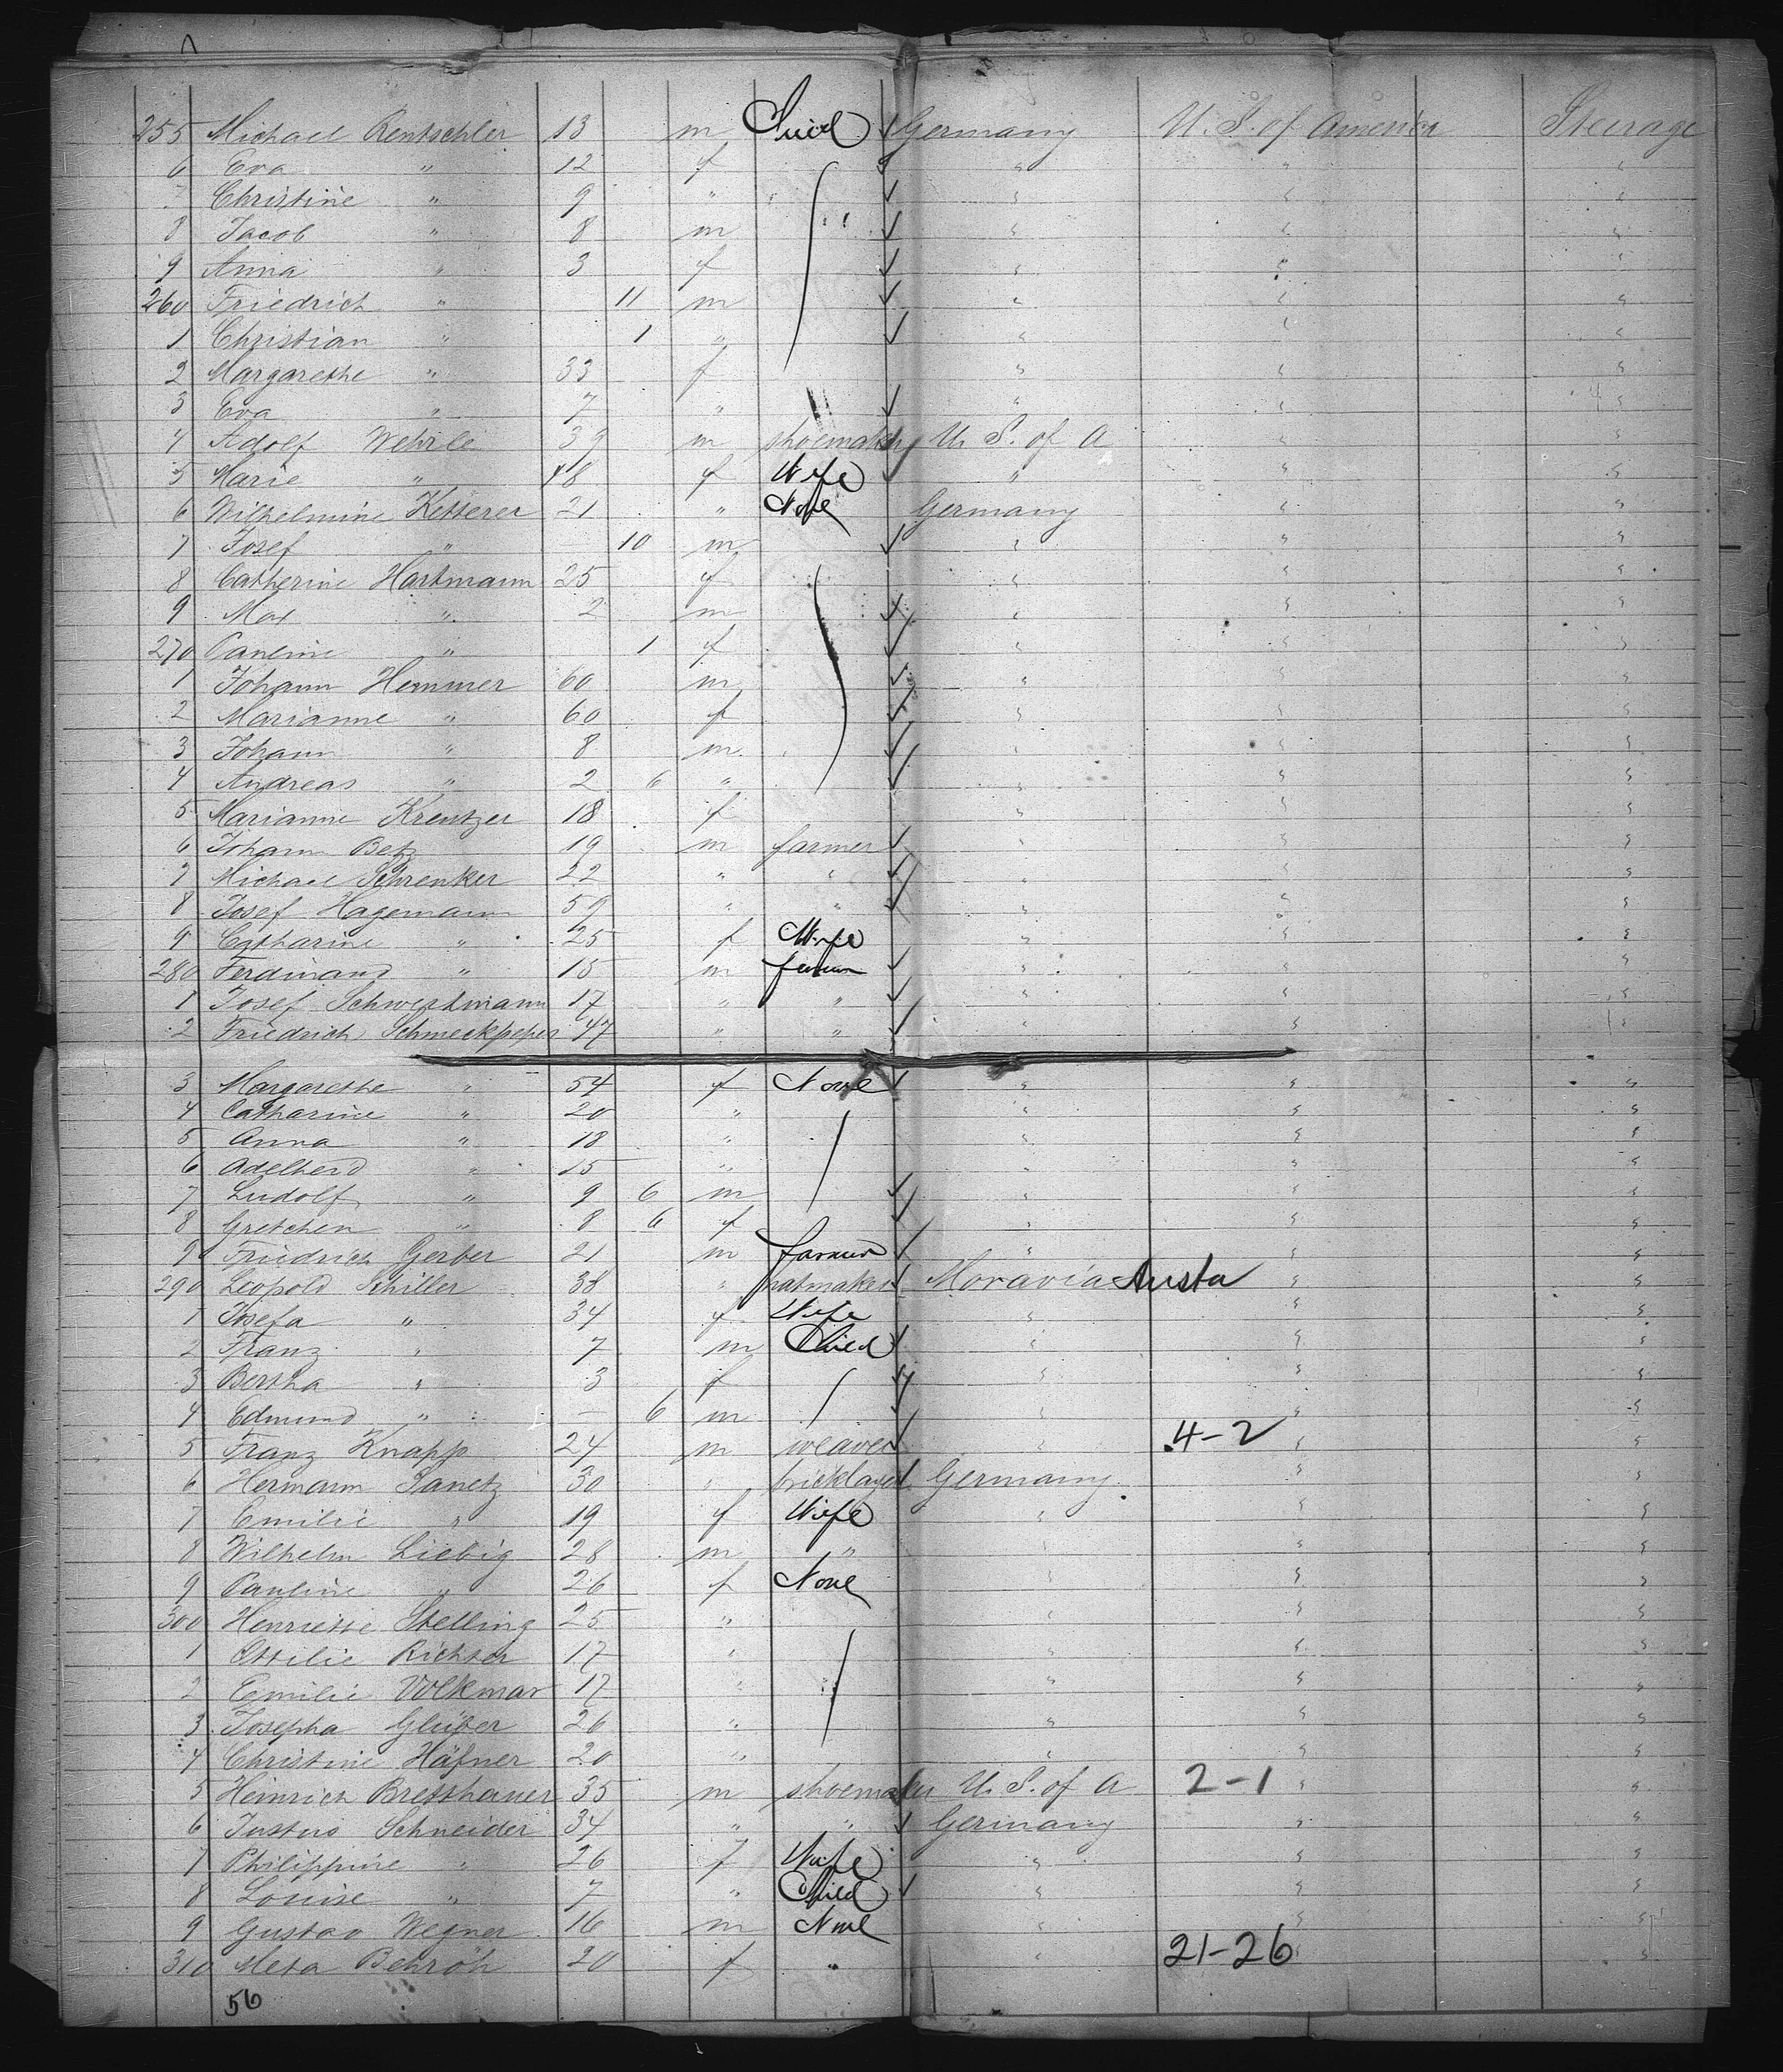 255 Michael Rentschler 13 m Child Germany U. S. of America Steerage
6 Eva " 12 f " " "
Christine " 9 " " " "
8 Jacob " 8 m " " "
9 Anna " 3 f " " "
260 Friedrich " 11 m " " "
1 Christian " 1 " " " "
2 Margarethe " 33 f " " "
3 Eva " 7 " " " "
4 Adolf Wehrle 39 m shoemaker U. S. of A " "
5 Marie " 48 f Wife " " "
6 Wilhelmine Ketterer 21 " None Germany " "
7 Josef " 10 m " " "
8 Catherine Hartmann 25 f " " "
9 Max " 2 m " " "
270 Pauline " 1 f " " "
1 Johann Hemmer 60 m " " "
2 Marianne " 60 f " " "
3 Johann " 8 m " " "
4 Andreas " 2 6 " " " "
5 Marianne Kreutzer 18 f " " "
6 Johann Betz 19 m farmer " " "
7 Michael Schrenker 22 " " " " "
8 Josef Hagemann 59 " " " " "
9 Catharine " 25 f Wife " " "
280 Ferdinand " 15 m farmer " " "
1 Josef Schwertmann 17 " " " " "
2 Friedrich Schmeckpeper 47 " " " " "
3 Margarethe " 54 f None " " "
4 Catharine " 20 " " " "
5 Anna " 18 " " " "
6 Adelheid " 15 " " " "
7 Ludolf " 9 6 m " " "
8 Gretchen " 8 6 f " " "
9 Friedrich Gerber 21 m farmer " " "
290 Leopold Schiller 38 " hatmaker Moravia Austa " "
1 Josefa " 34 f Wife " " "
2 Franz " 7 m Child " " "
3 Bertha " 3 f " " "
4 Edmund " – 6 m " " "
5 Franz Knapp 24 m weaver " 4-2 " "
6 Hermann Janetz 30 " bricklayer Germany " "
7 Emilie " 19 f Wife " " "
8 Wilhelm Liebig 28 m " " " "
9 Pauline " 26 f None " " "
300 Henriette Stelling 25 " " " "
1 Ottilie Richter 17 " " " "
2 Emilie Volkmar 17 " " " "
3 Josepha Glüber 26 " " " "
4 Christine Häfner 20 " " " "
5 Heinrich Bretthauer 35 m shoemaker U. S. of A 2-1 " "
6 Justus Schneider 34 " " Germany " "
7 Philippine " 26 f Wife " " "
8 Louise " 7 " Child " " "
9 Gustav Wegner 16 m None " " "
310 Meta Behröh 20 f " " 21-26 " "
56